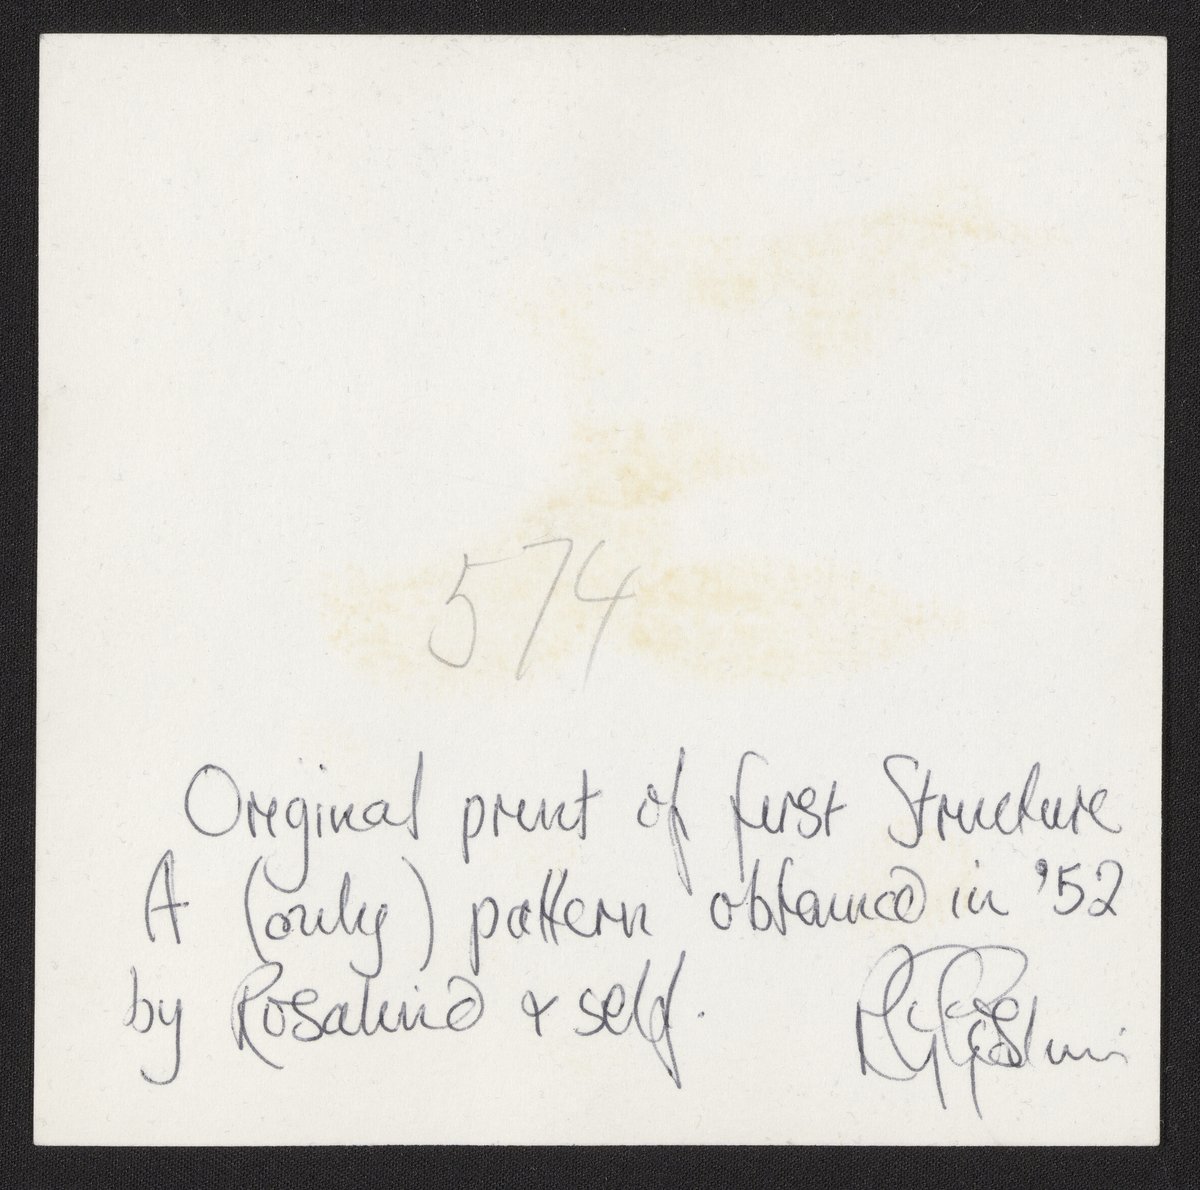 574
Original print of first Structure
A (only) pattern obtained in '52
by Rosalind & self.